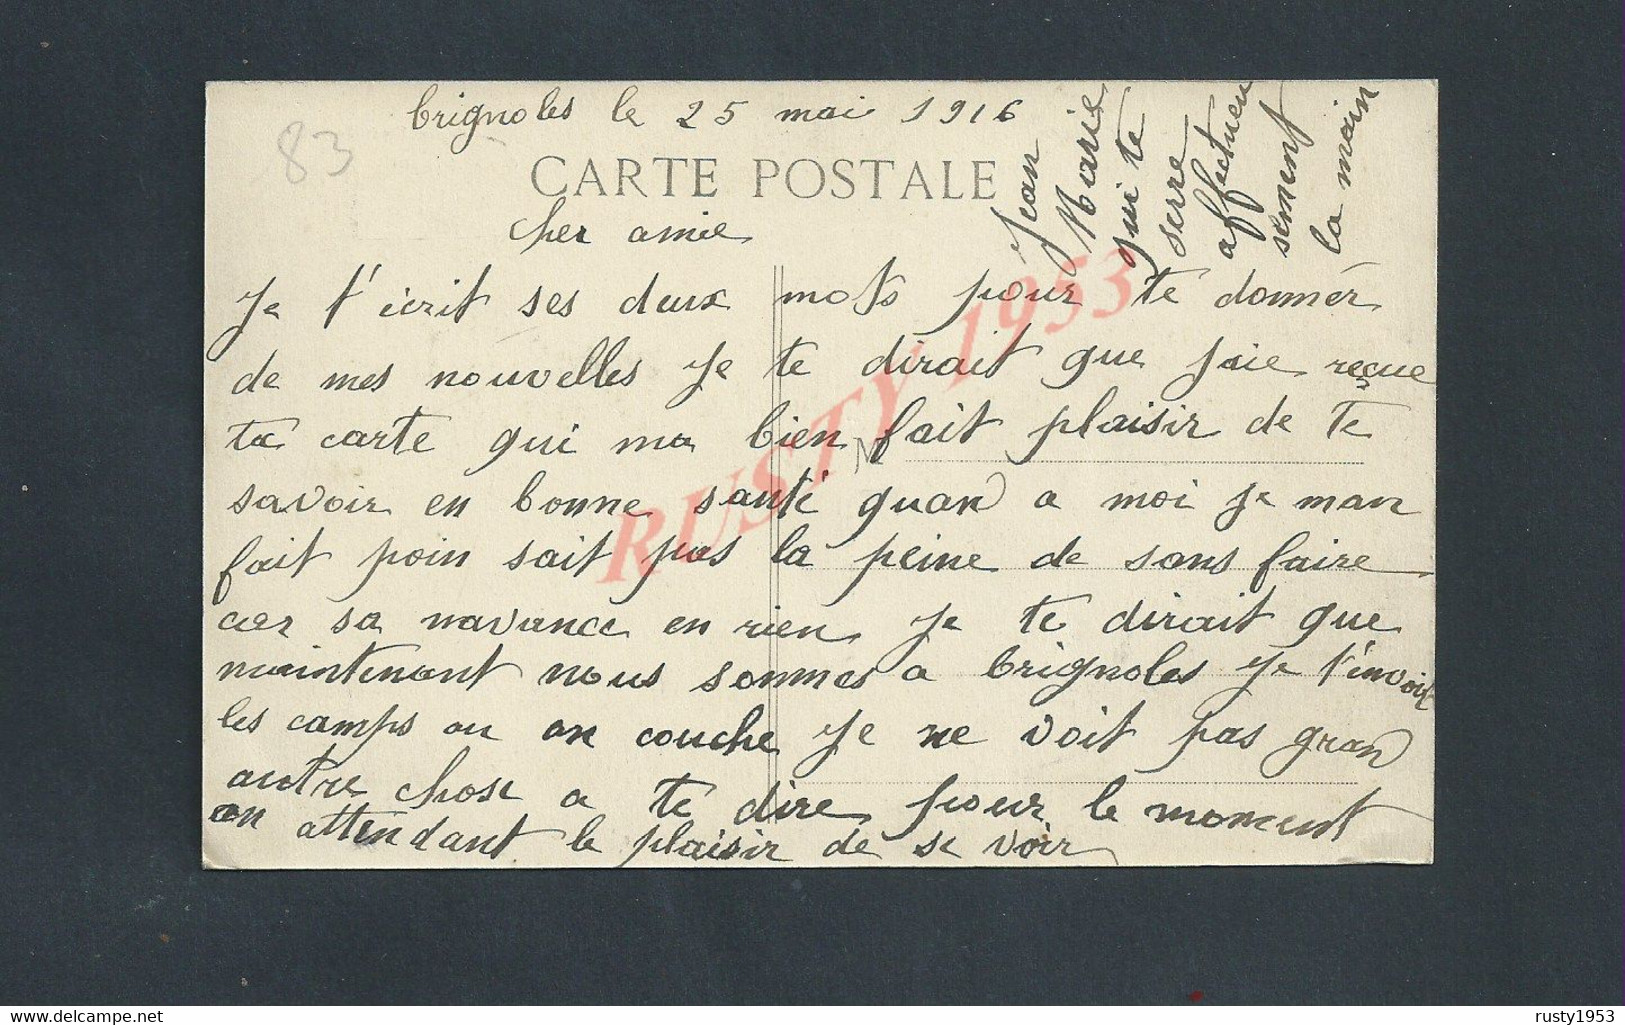 brignoles le 25 mai 1916
83
CARTE POSTALE
cher amie
Je t'écrit ses deux mots pour te donnér
de mes nouvelles Je te dirait que Jaie reçue
ta carte qui ma bien fait plaisir de te
savoir en bonne santé quand a moi Je man
fait poin sait pas la peine de sans faire
car sa navance en rien Je te dirait que
maintenant nous sommes a brignoles Je t'envoie
les camps ou on couche Je ne voit pas grand
autre chose a te dire pour le moment
en attendant le plaisir de se voir
Jean
Marie
qui te
serre
affectueu
sement
la main
RUSTY 1953
delcampe.net
rusty1953